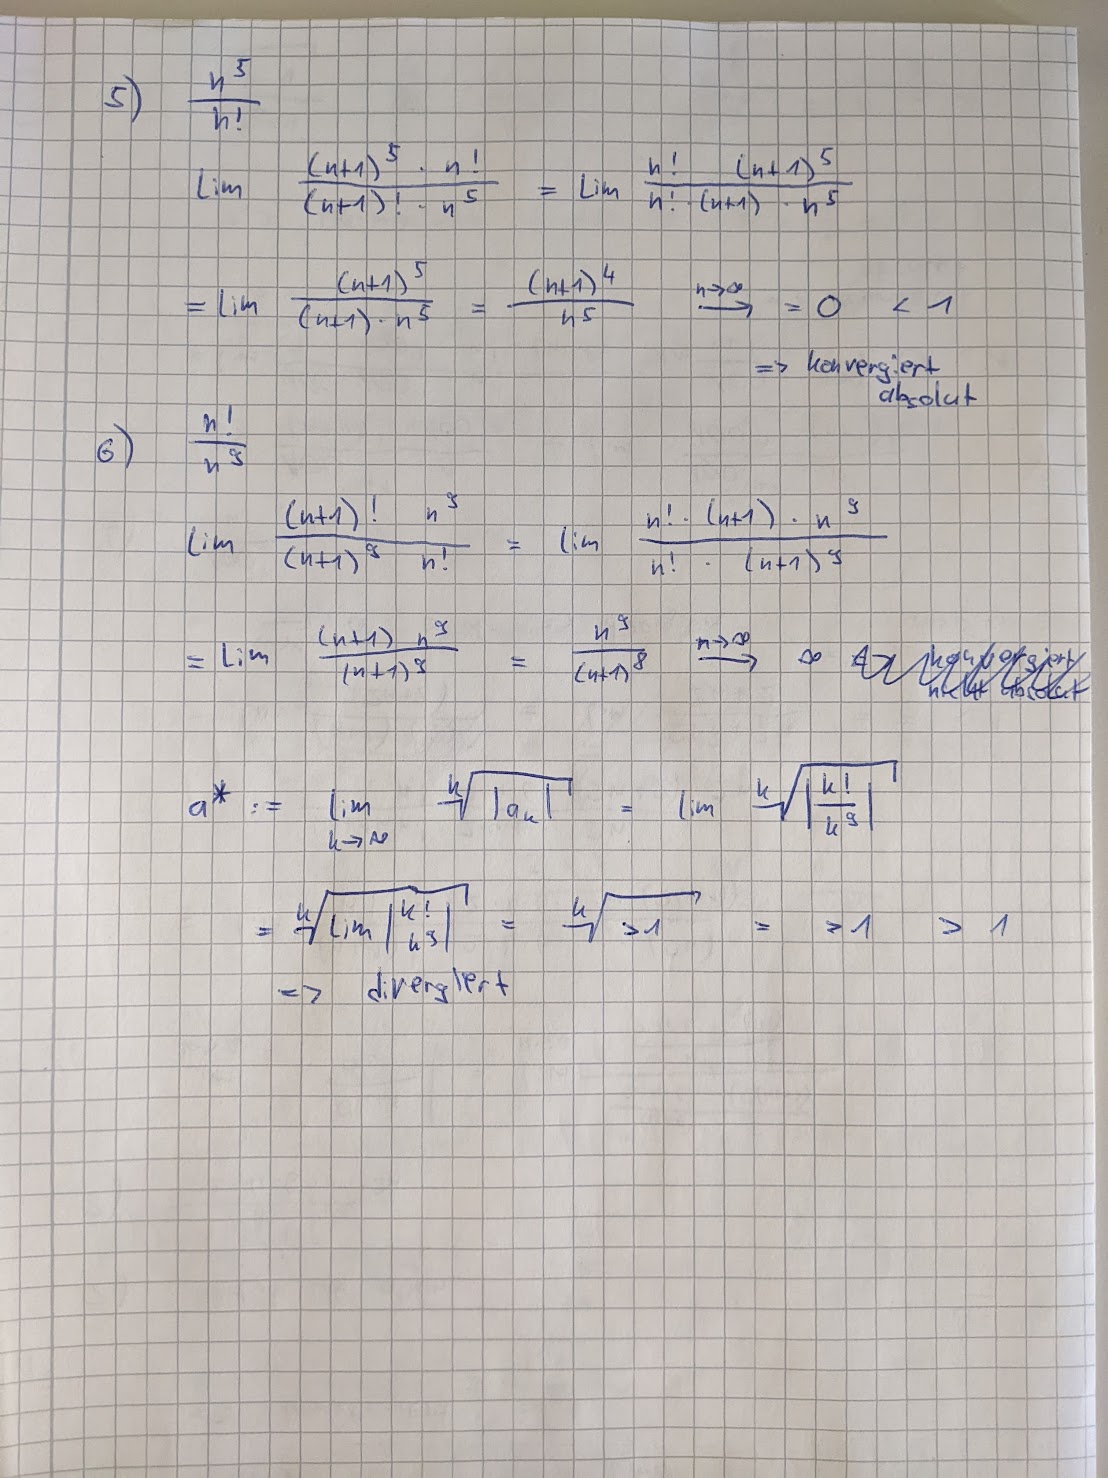 5) n^5 / n!
Lim (n+1)^5 · n! / (n+1)! · n^5 = Lim n! (n+1)^5 / n! · (n+1) · n^5
= Lim (n+1)^5 / (n+1) · n^5 = (n+1)^4 / n^5 n→∞ ⟶ = 0 < 1
=> konvergiert
absolut
6) n! / n^9
Lim (n+1)! n^9 / (n+1)^9 n! = Lim n! · (n+1) · n^9 / n! · (n+1)^9
= Lim (n+1) n^9 / (n+1)^9 = n^9 / (n+1)^8 n→∞ ⟶ ∞ konvergiert
nicht absolut
a* := lim k→∞ k√|a_k| = lim k√|k! / k^9|
= k√Lim |k! / k^9| = k√>1 = >1 > 1
=> divergiert